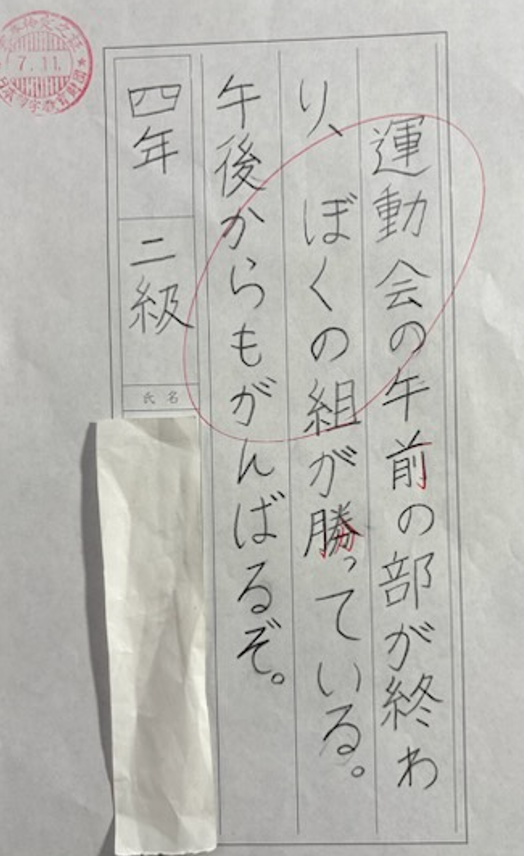 運動会の午前の部が終わ
り、ぼくの組が勝っている。
午後からもがんばるぞ。
四年 二級
氏名
7.11.